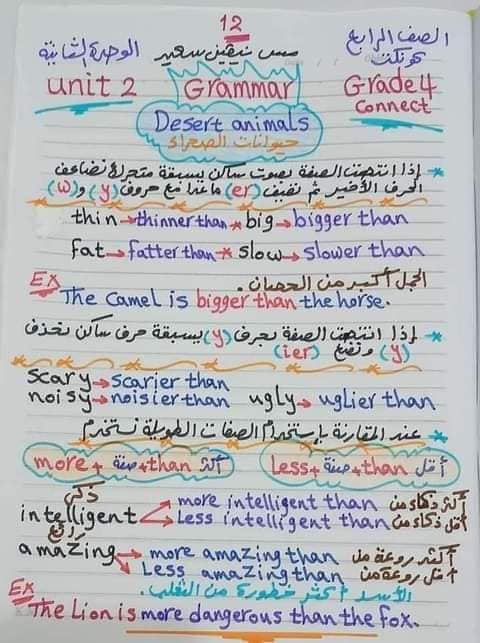 12
الصف الرابع مس نيڤين سعير الوحدة الثانية
كونكت
Grade 4 Grammar unit 2
Connect
Desert animals
حيوانات الصحراء
* إذا انتهت الصفة بصوت ساكن يسبقه متحرك نضاعف
الحرف الأخير ثم نضيف (er) ماعدا مع حروف (y) و(w)
thin → thinner than * big → bigger than
fat → fatter than * slow → slower than
الجمل أكبر من الحصان.
Ex The Camel is bigger than the horse.
* إذا انتهت الصفة بحرف (y) يسبقه حرف ساكن نحذف
(y) ونضع (ier)
scary → scarier than
noisy → noisier than ugly → uglier than
* عند المقارنة بإستخدام الصفات الطويلة نستخدم
more + صفة + than أكثر Less + صفة + than أقل
ذكي
intelligent more intelligent than أكثر ذكاء من
Less intelligent than أقل ذكاء من
رائع
amazing → more amazing than أكثر روعة من
Less amazing than أقل روعة من
الأسد أكثر خطورة من الثعلب.
Ex
The Lion is more dangerous than the fox.